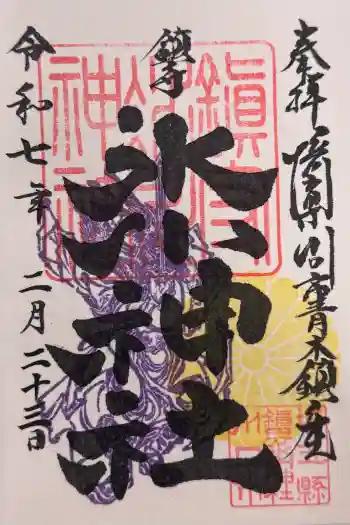 奉拝 埼玉県川口市青木鎮座
鎮守
氷川神社
令和七年 二月二十三日
鎮守
氷川
神社